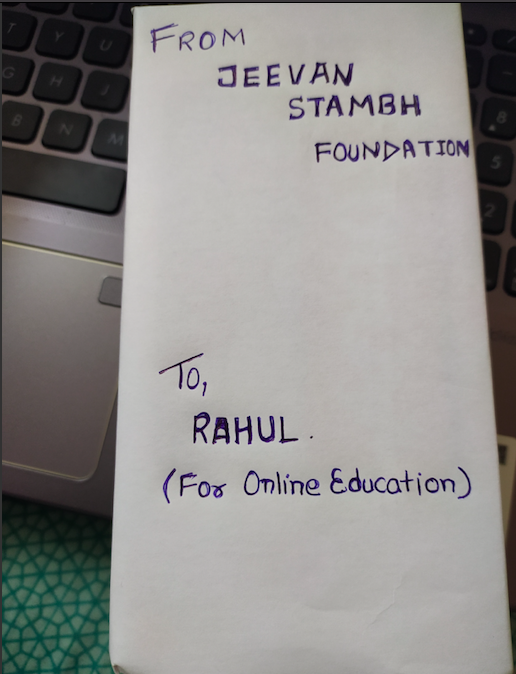 FROM
JEEVAN
STAMBH
FOUNDATION
To,
RAHUL.
(For Online Education)